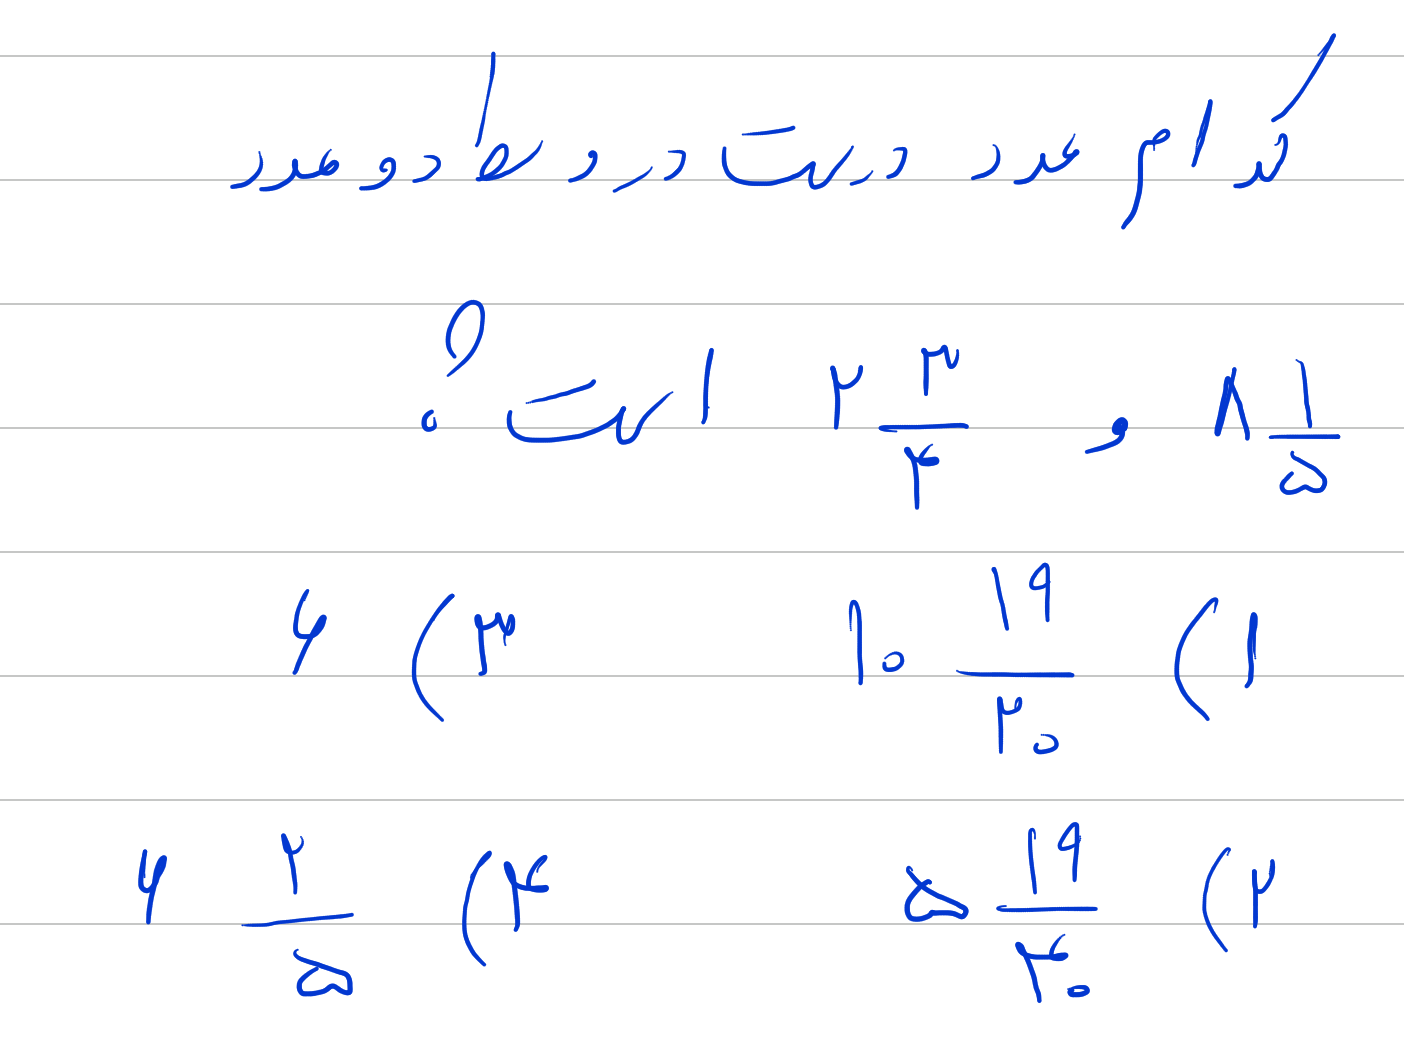 کدام عدد درست در وسط دو عدد
۸ ۱/۵ و ۲ ۳/۴ است ؟
۱) ۱۰ ۱۹/۲۰ ۳) ۶
۲) ۵ ۱۹/۴۰ ۴) ۶ ۲/۵